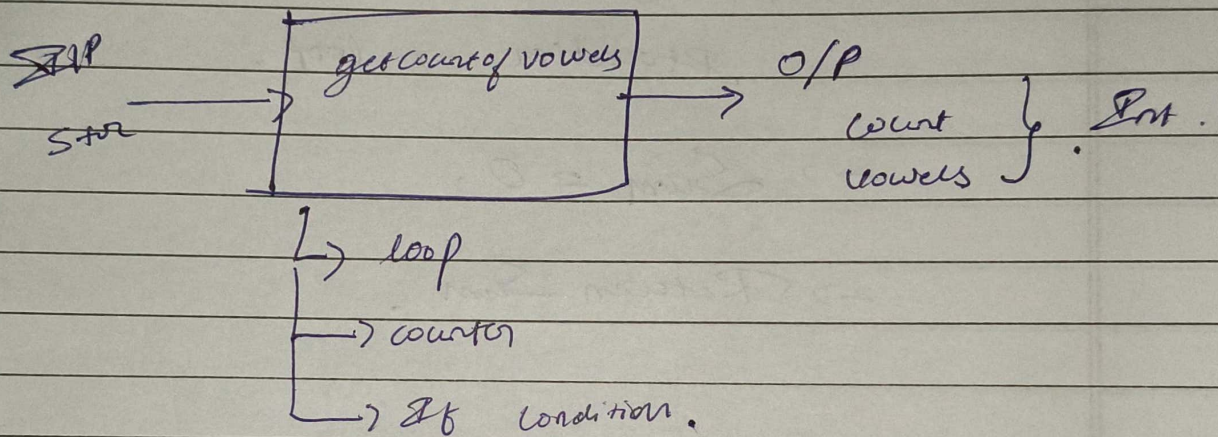 I/P
str
getcountof vowels
O/P
count
vowels
Int.
loop
counter
If condition.